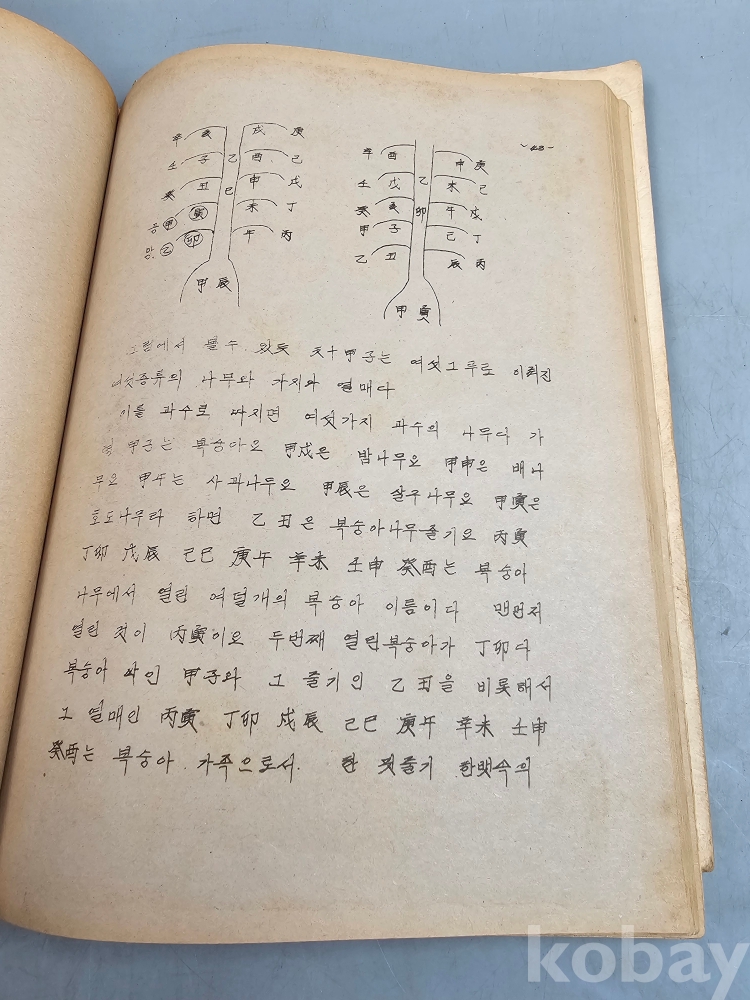 -43-
辛 亥 戌 庚
壬 子 乙 酉 己
癸 丑 巳 申 戊
음 甲 寅 未 丁
양 乙 卯 午 丙
甲 辰
辛 酉 申 庚
壬 戊 乙 未 己
癸 亥 卯 午 戊
甲 子 己 丁
乙 丑 辰 丙
甲 寅
그림에서 볼수 있듯 六十甲子는 여섯그루로 이뤄진
여섯종류의 나무와 가지와 열매다
이를 과수로 따지면 여섯가지 과수의 나무다 가
령 甲子는 복숭아요 甲戌은 밤나무요 甲申은 배나
무요 甲午는 사과나무요 甲辰은 살구나무요 甲寅은
호도나무라 하면 乙丑은 복숭아나무줄기요 丙寅
丁卯 戊辰 己巳 庚午 辛未 壬申 癸酉는 복숭아
나무에서 열린 여덟개의 복숭아 이름이다 맨먼저
열린 것이 丙寅이요 두번째 열린복숭아가 丁卯다
복숭아 싸인 甲子와 그 줄기인 乙丑을 비롯해서
그 열매인 丙寅 丁卯 戊辰 己巳 庚午 辛未 壬申
癸酉는 복숭아 가족으로서. 한 핏줄기 한뱃속의
kobay